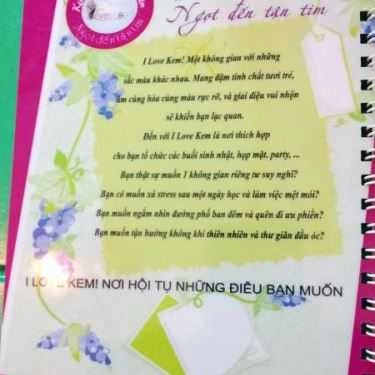 Ngọt đến tận tim
Ngọt đến tận tim
I Love Kem! Một không gian với những
sắc màu khác nhau. Mang đậm tính chất tươi trẻ,
ấm cúng hòa cùng màu rực rỡ, và giai điệu vui nhộn
sẽ khiến bạn lạc quan.
Đến với I Love Kem là nơi thích hợp
cho bạn tổ chức các buổi sinh nhật, họp mặt, party, ...
Bạn thật sự muốn 1 không gian riêng tư suy nghĩ?
Bạn có muốn xả stress sau một ngày học và làm việc mệt mỏi?
Bạn muốn ngắm nhìn đường phố ban đêm và quên đi ưu phiền?
Bạn muốn tận hưởng không khí thiên nhiên và thư giãn đầu óc?
I LOVE KEM! NƠI HỘI TỤ NHỮNG ĐIỀU BẠN MUỐN